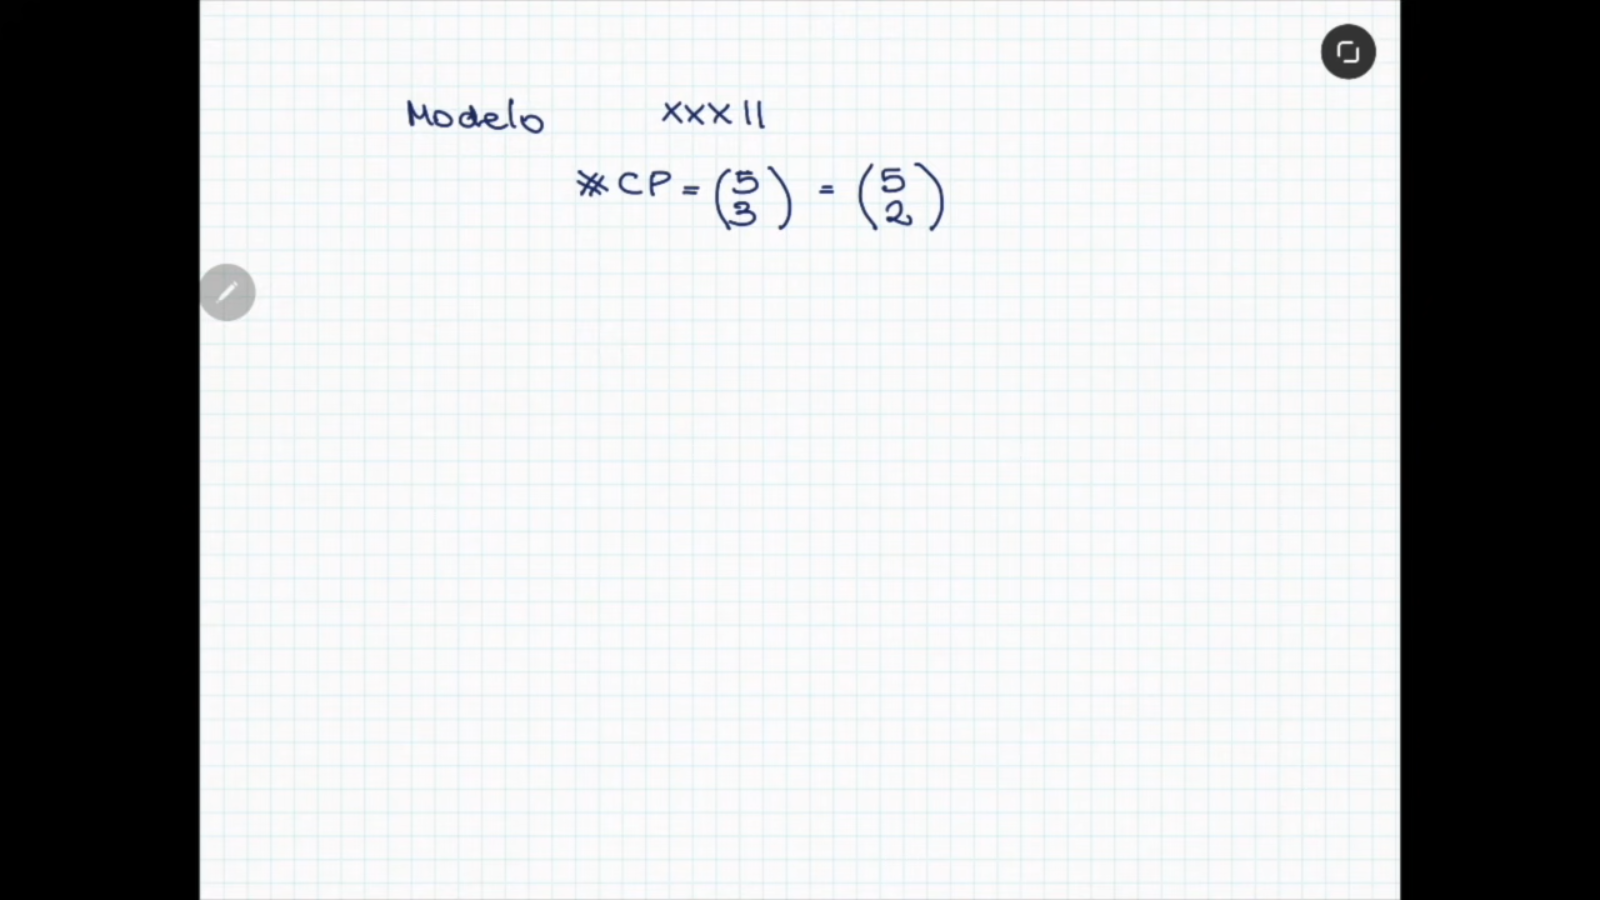 Modelo XXXII
#CP = (5 3) = (5 2)